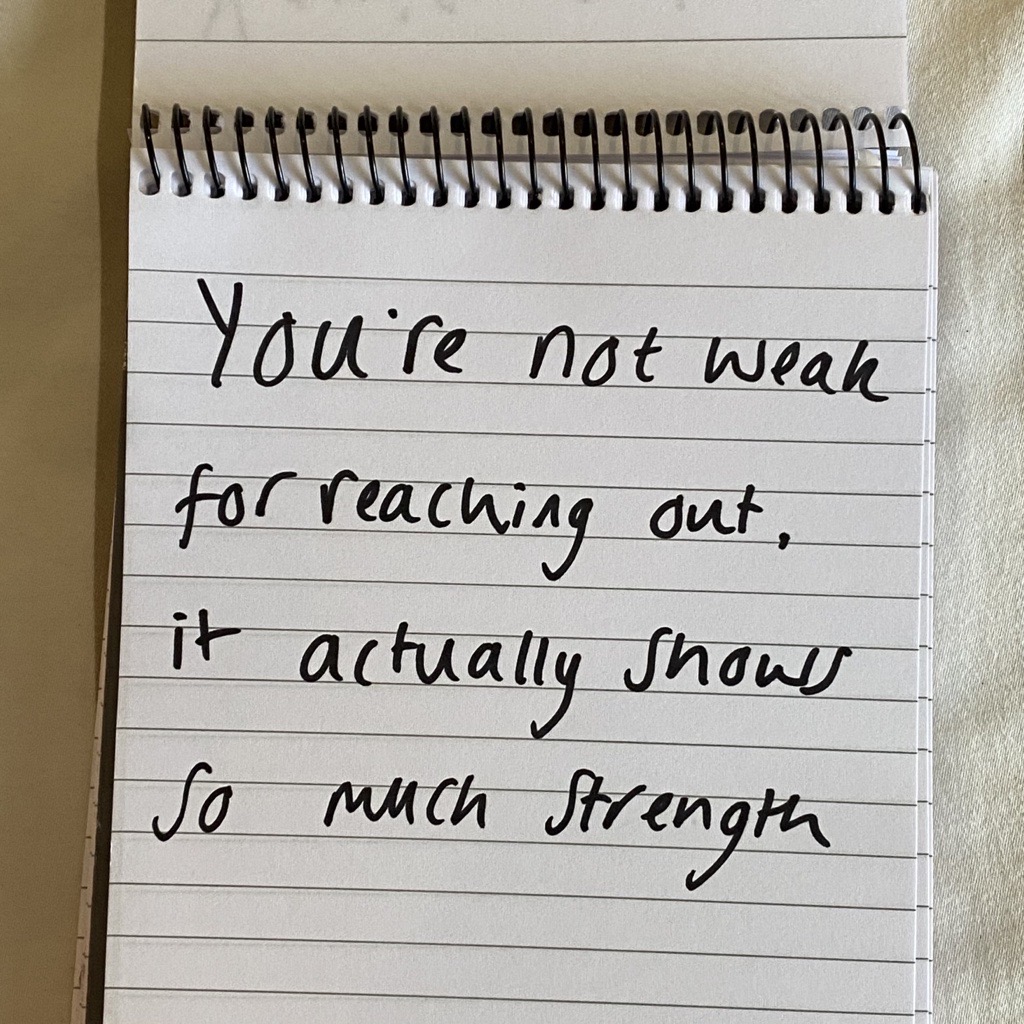 You're not weak
for reaching out,
it actually shows
so much strength